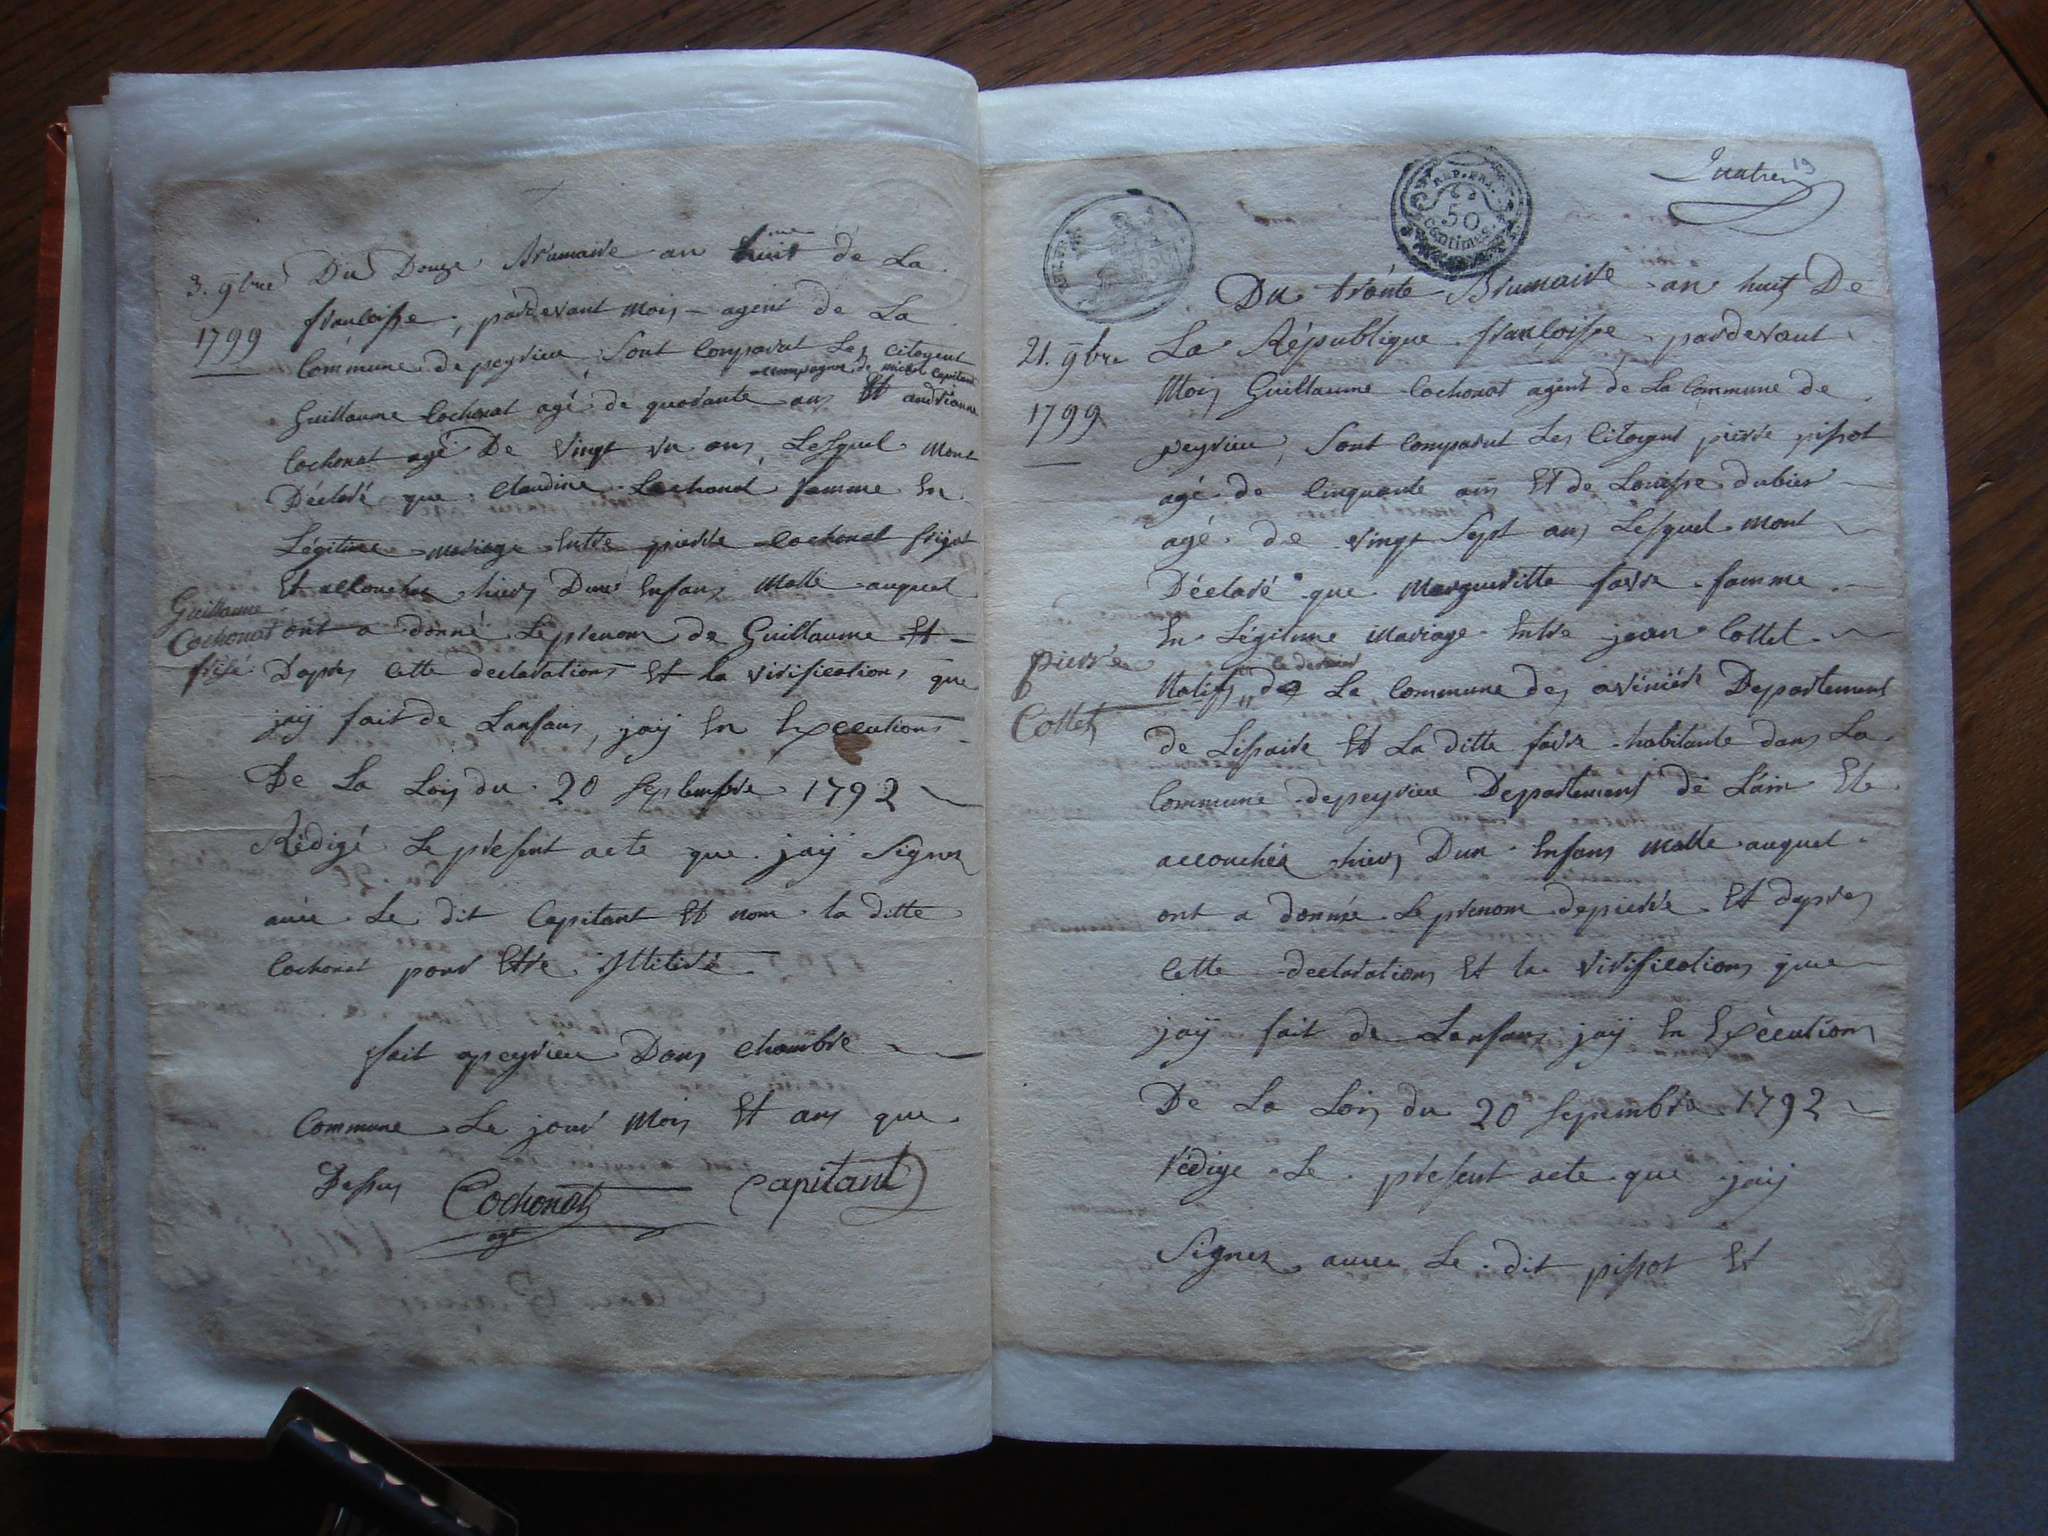 3. 9bre Du Douze Brumaire an huit me de La
1799 francoisse, pardevant mois agent de La
Commune de peyrieu Sont Comparut Les Citoyent
accompagne de michel Capitant
Guillaume Cochonat agé de quarante ans Et andrianne
Cochonat agé De vingt un ans, Lesquel mont
Déclaré que Claudine Cochonat famme En
Légitime mariage Entre pierre Cochonat frizat
Et accouchee hiers Dune Enfans Malle auquel
Guillaume
Cochonat
frisé
ont a donné Le prenom de Guillaume Et
Dapres Cette declarations Et la virifications que
jaÿ fait de Lanfans, jaÿ En Execcutions
De La Lois du 20 Septembre 1792
Rédigé Le présent acte que jaÿ Signer
avéc Le dit Capitant Et nom la ditte
Cochonat pour Etre Illitéré
fait apeyrieu Dans Chambre
Commune Le jour Mois Et ans que
Dessus Cochonat Capitant
agt
19
REP. FRA.
50
Centimes
Du trante Brumaire an huit De
21. 9bre La République francoisse pardevant
1799
Mois Guillaume Cochonat agent de La Commune de
peyrieu, Sont Comparut Les Citoyent pierre pissot
agé de Cinquante ans Et de Louisse dubier
agé de vingt Sept ans Lesquel mont
Déclaré que Margueritte favre famme
En Légitime Mariage Entre jean Collet
pierre
Collet
le dernier
Natifs de La Commune des aviniere Departement
de Lissaire Et La ditte favre habitante dans La
Commune depeyrieu Departement de Lain Et
accouchée hiers Dun Enfans Malle auquel
ont a donnée Le prenom depierre Et dapres
Cette declarations Et la virifications que
jaÿ fait de Lanfans jaÿ En Exècutions
De La Lois du 20 Sepembre 1792
rédige Le présent acte que jaÿ
Signer avec Le dit pissot Et